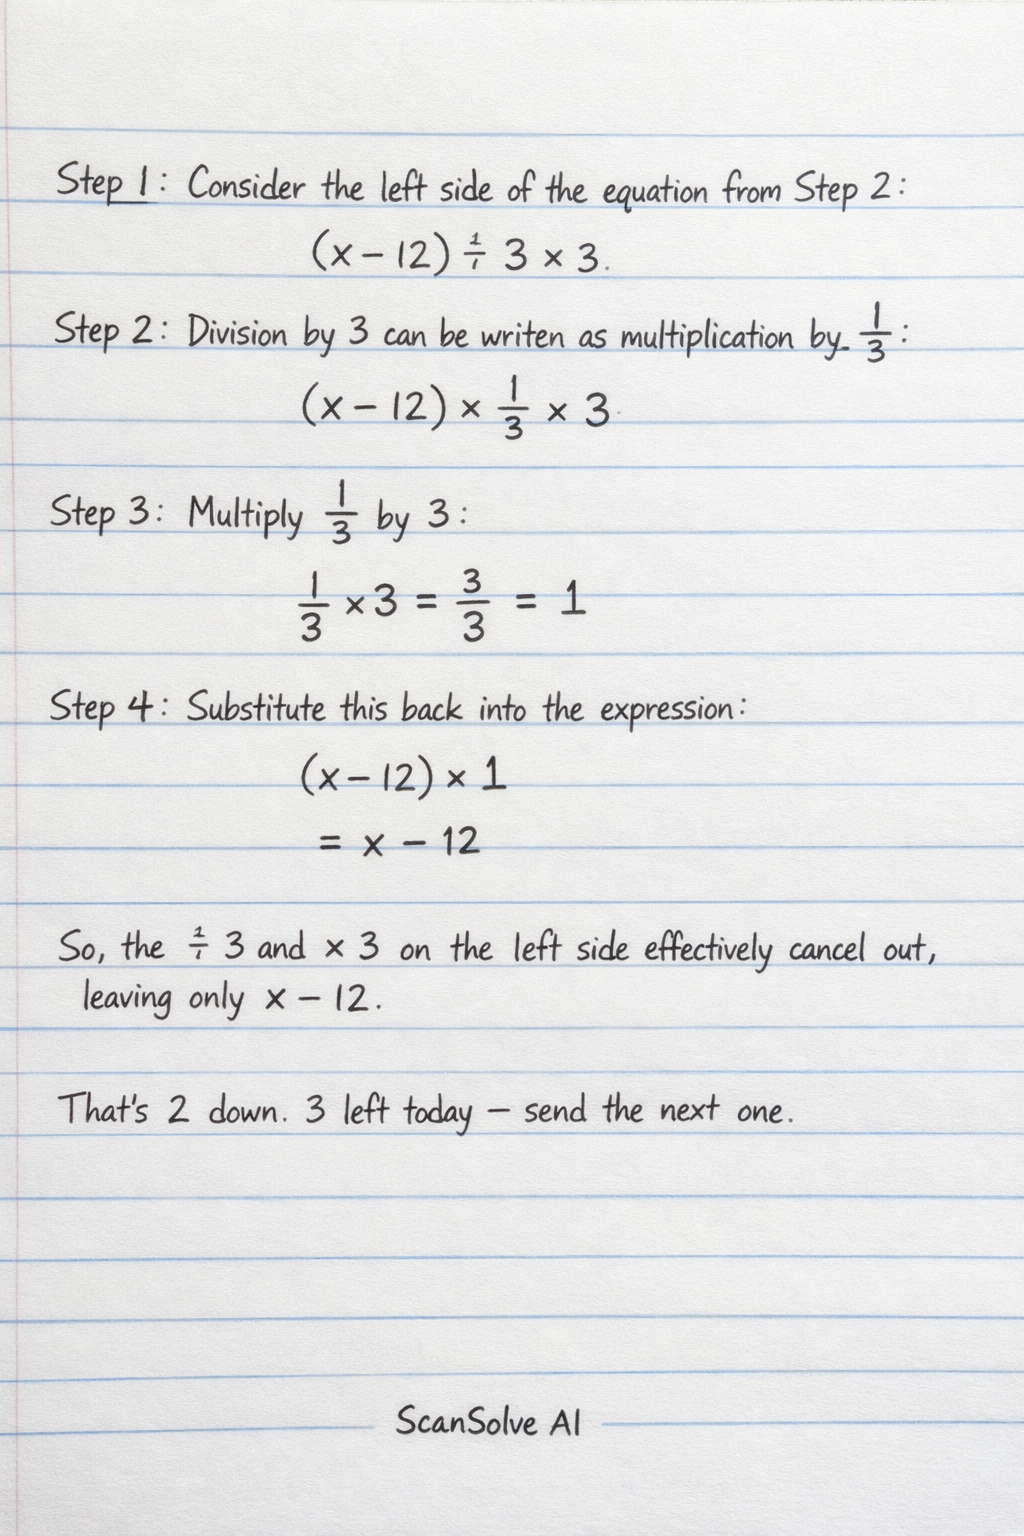 Step 1: Consider the left side of the equation from Step 2:
(x − 12) ÷ 3 × 3.
Step 2: Division by 3 can be writen as multiplication by 1/3:
(x − 12) × 1/3 × 3
Step 3: Multiply 1/3 by 3:
1/3 × 3 = 3/3 = 1
Step 4: Substitute this back into the expression:
(x − 12) × 1
= x − 12
So, the ÷ 3 and × 3 on the left side effectively cancel out,
leaving only x − 12.
That's 2 down. 3 left today – send the next one.
ScanSolve AI